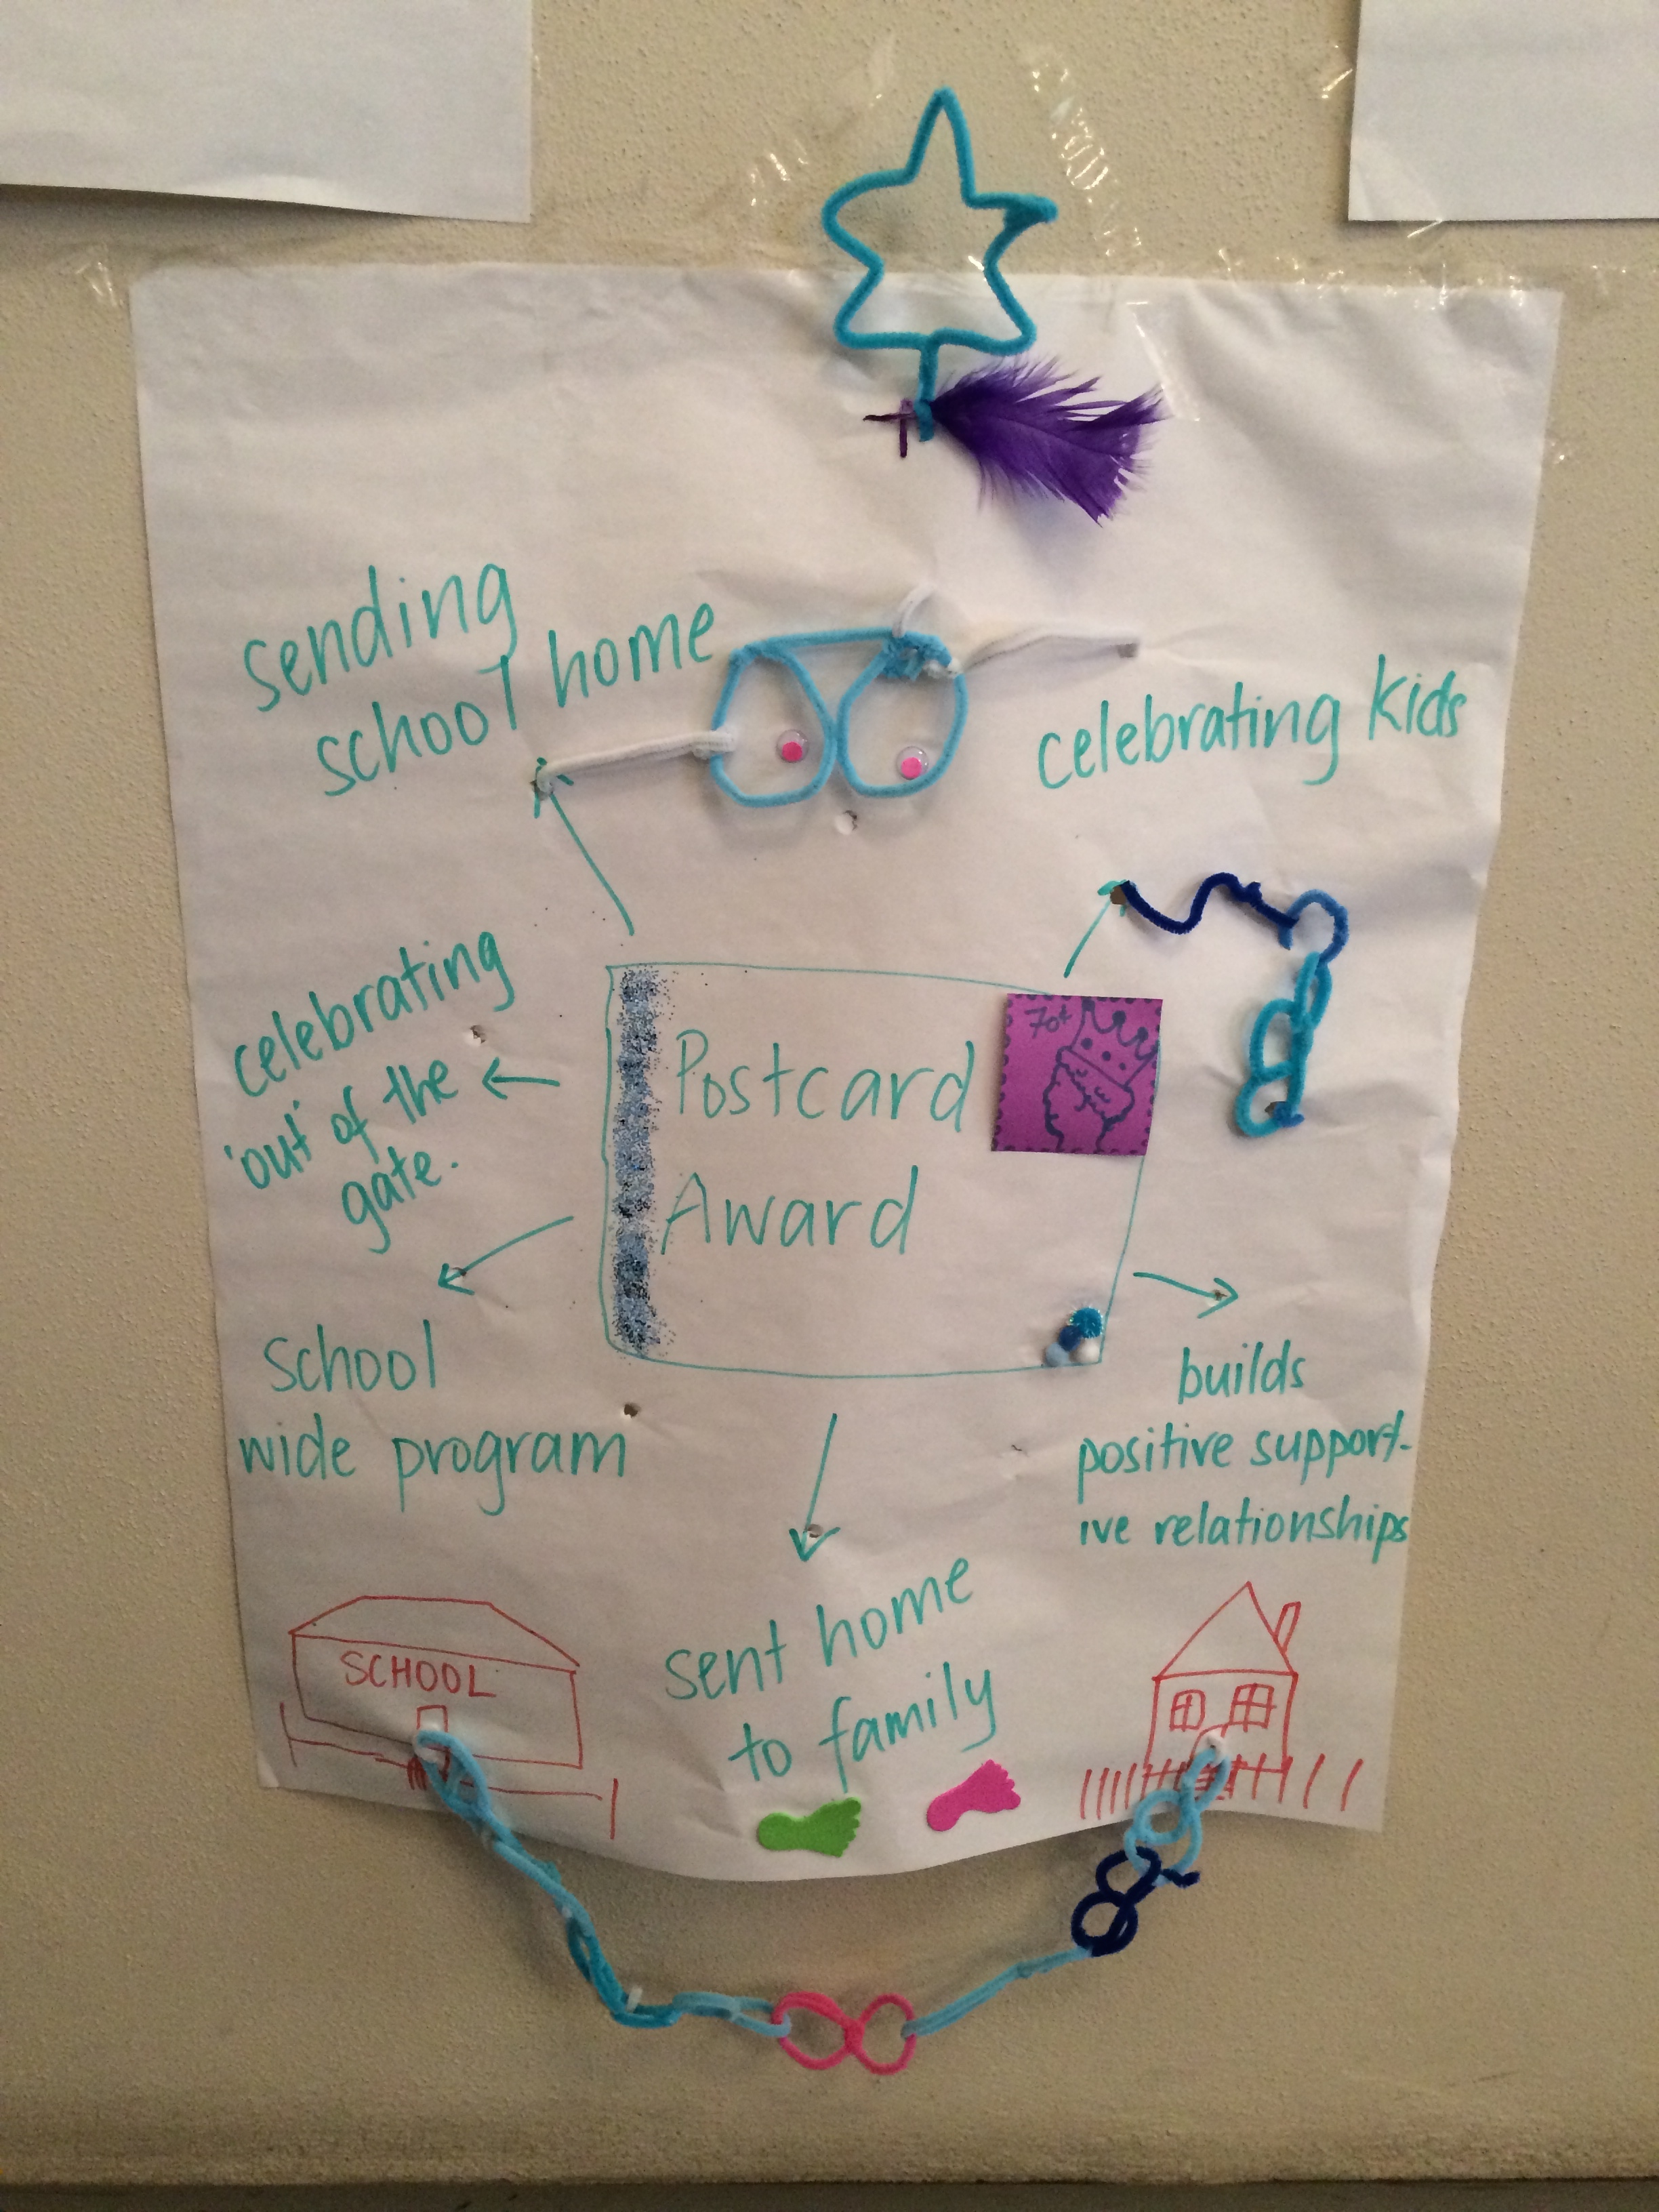 sending
school home
celebrating kids
celebrating
'out' of the
gate.
Postcard
Award
70¢
school
wide program
builds
positive support-
ive relationships
sent home
to family
SCHOOL